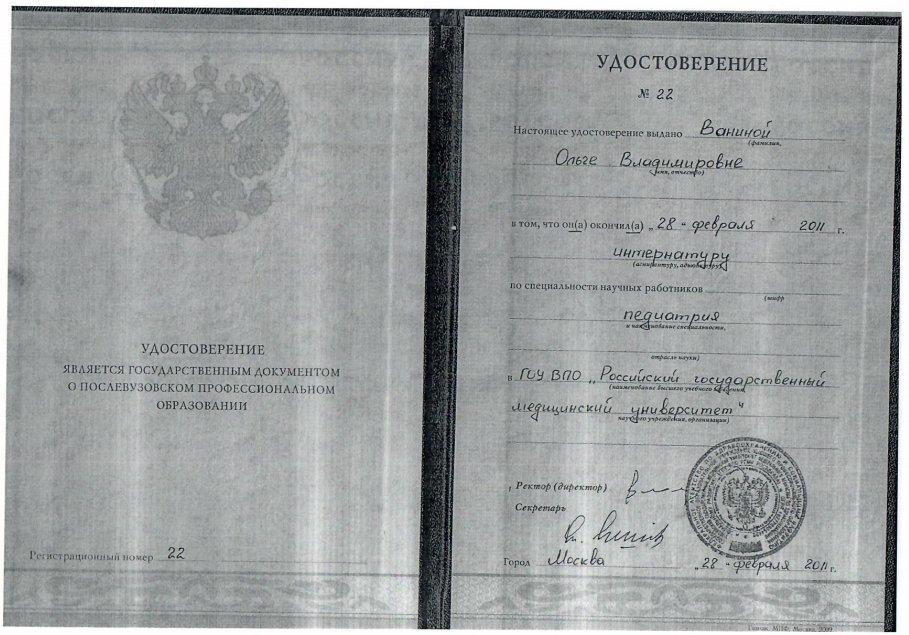 УДОСТОВЕРЕНИЕ
ЯВЛЯЕТСЯ ГОСУДАРСТВЕННЫМ ДОКУМЕНТОМ
О ПОСЛЕВУЗОВСКОМ ПРОФЕССИОНАЛЬНОМ
ОБРАЗОВАНИИ
Регистрационный номер 22
УДОСТОВЕРЕНИЕ
№ 22
Настоящее удостоверение выдано Ваниной
(фамилия,
Ольге Владимировне
имя, отчество)
в том, что он(а) окончил(а) „28" февраля 2011 г.
интернатуру
(аспирантуру, адъюнктуру)
по специальности научных работников
(шифр
педиатрия
и наименование специальности,
отрасль науки)
в ГОУ ВПО „Российский государственный
(наименование высшего учебного заведения,
медицинский университет"
научного учреждения, организации)
Ректор (директор)
Секретарь
Город Москва „28" февраля 2011 г.
Москва, 2009